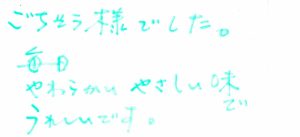 ごちそう様でした。
毎日
やわらかい やさしい味で
うれしいです。